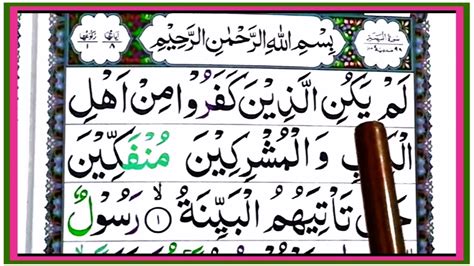 بِسْمِ اللهِ الرَّحْمٰنِ الرَّحِيْمِ
لَمْ يَكُنِ الَّذِيْنَ كَفَرُوْا مِنْ اَهْلِ
وَالْمُشْرِكِيْنَ مُنْفَكِّيْنَ
تَاْتِيَهُمُ الْبَيِّنَةُ ۙ ١ رَسُوْلٌ